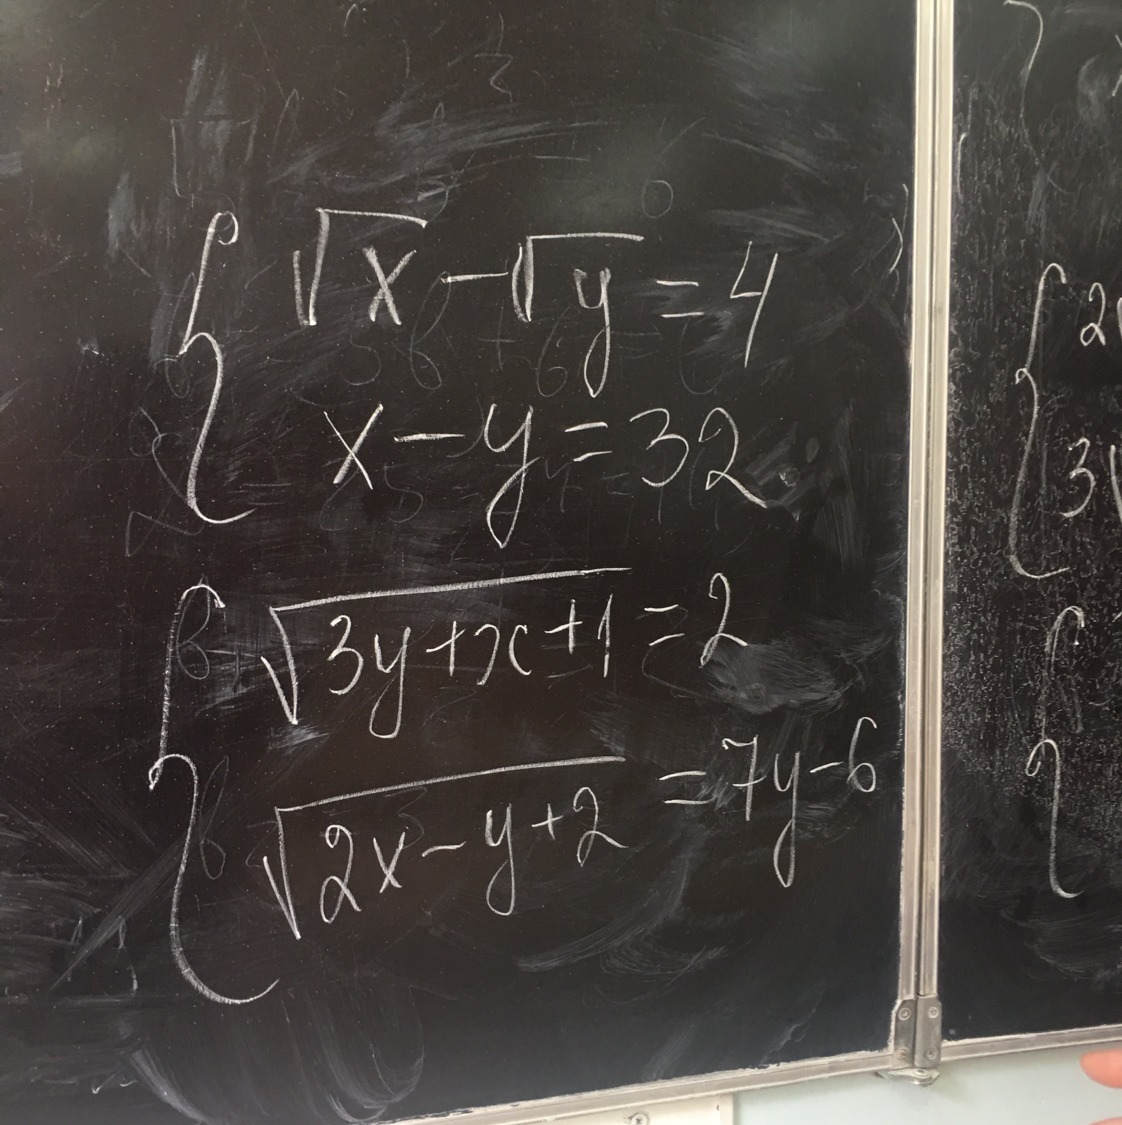 √x - √y = 4
x - y = 32
√3y + x + 1 = 2
√2x - y + 2 = 7y - 6
2√
3√